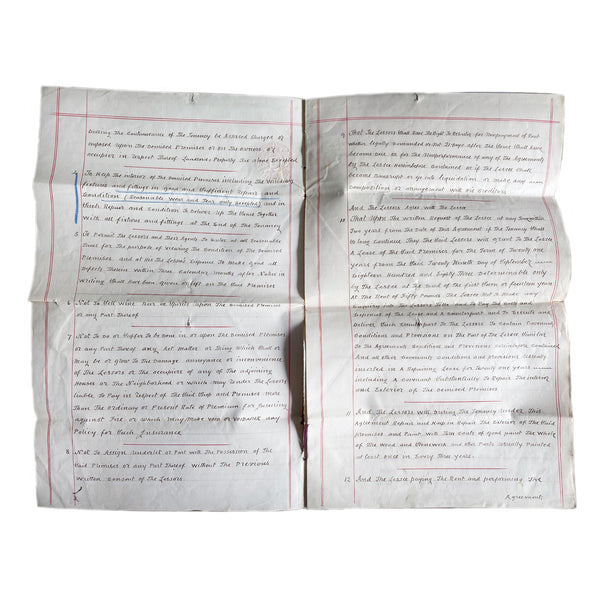 During The Continuance of The Tenancy be Assessed Charged or
imposed upon The Demised Premises or on The Owners or
occupiers in respect Thereof Landlords Property Tax alone Excepted
4 To Keep The interior of The Demised Premises including The Windows
fixtures and fittings in good and Sufficient Repair and
Condition (Reasonable Wear and Tear only excepted) and in
Such Repair and Condition To Deliver up The House Together
With all fixtures and fittings at The End of The Tenancy
5 To Permit The Lessors and Their Agents To Enter at all reasonable
Times for The purpose of Viewing The Condition of The Demised
Premises and at His The Lessees Expense To Make good all
Defects Therein Within Three Calendar Months after Notice in
Writing Shall have been given or left on The Said Premises
6 Not To Sell Wine Beer or Spirits Upon The Demised Premises
or any Part Thereof
7 Not To do or Suffer To be done in or upon The Demised Premises
or any Part Thereof any Act Matter or Thing Which Shall or
May be or grow To The Damage annoyance or inconvenience
of The Lessors or The occupiers of any of The adjoining
Houses or The Neighborhood or which May render The Lessors
liable To Pay in respect of The Said Shop and Premises More
Than The Ordinary or Present Rate of Premium for Insuring
against Fire or which May Make Void or Voidable any
Policy for Such Insurance
8 Not To Assign Underlet or Part With The Possession of The
Said Premises or any Part Thereof Without The Previous
Written consent of The Lessors
9 That The Lessors Shall have The Right To ReEnter for Nonpayment of Rent
Whether legally Demanded or Not 21 Days after The Same Shall have
become Due or for The Nonperformance of any of The Agreements
by The Lessee hereinbefore Contained or if The Lessee Shall
become Bankrupt or go into liquidation or Make any
Composition or arrangement With His Creditors
And The Lessors Agree With The Lessee
10 That Upon The Written Request of The Lessee at any Time within
Two years from The Date of This Agreement if The Tenancy Shall
so long Continue They The Said Lessors Will grant To The Lessee
A Lease of The Said Premises For The Term of Twenty one
years from The Said Twenty Ninth Day of September
Eighteen Hundred and Eighty Three Determinable only
by The Lessee at The End of The first Seven or fourteen years
At The Rent of Fifty Pounds The Lessee Not To Make any
Enquiry into The Lessors Title and To Pay The Costs and
Expenses of The Lease and A Counterpart and To Execute and
Deliver Such Counterpart To The Lessors To Contain Covenants
Conditions and Provisions on The Part of The Lessee Similar
To The Agreements Conditions and Provisions hereinbefore Contained
And all other Covenants Conditions and provisions Usually
inserted in A Repairing Lease for Twenty one years
including A Covenant Substantially To Repair The interior
and Exterior of The Demised Premises
11 And The Lessors Will During The Tenancy Under This
Agreement Repair and Keep in Repair The Exterior of The Said
Premises and Paint With Two Coats of good paint The Whole
of The Wood and Stonework and other Parts Usually Painted
at least once in Every Three years
12 And The Lessee paying The Rent and performing The
Agreements